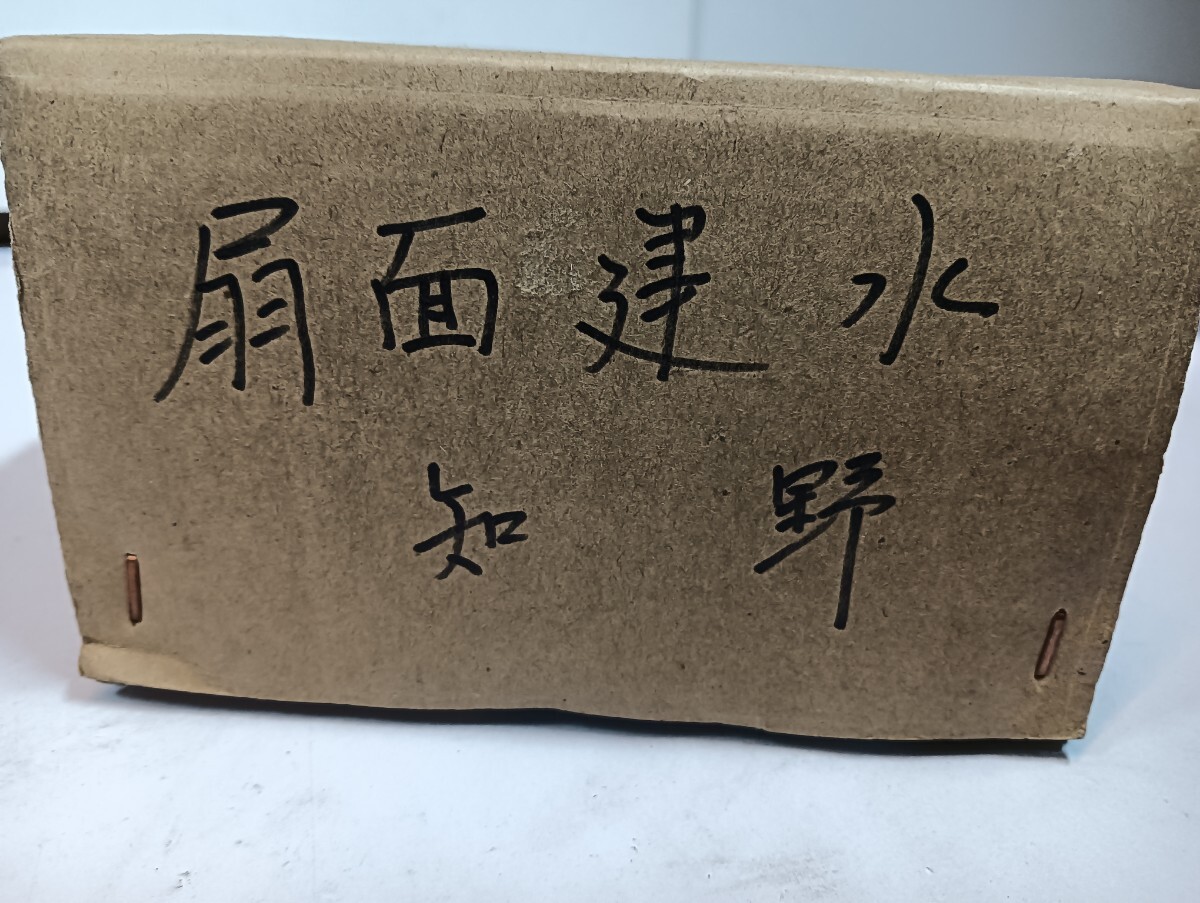 扇面建水
知野